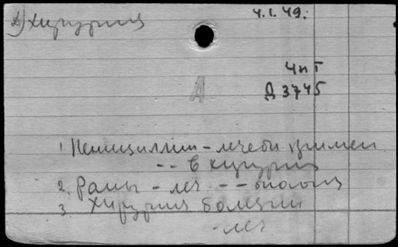 2) Хирургия 4.I.49.
ЧпГ
Д 3745
А
1. Пенициллин – лечебн примен
-- в хирургии
2. Раны – леч --
3. Хирургия болезни
- леч